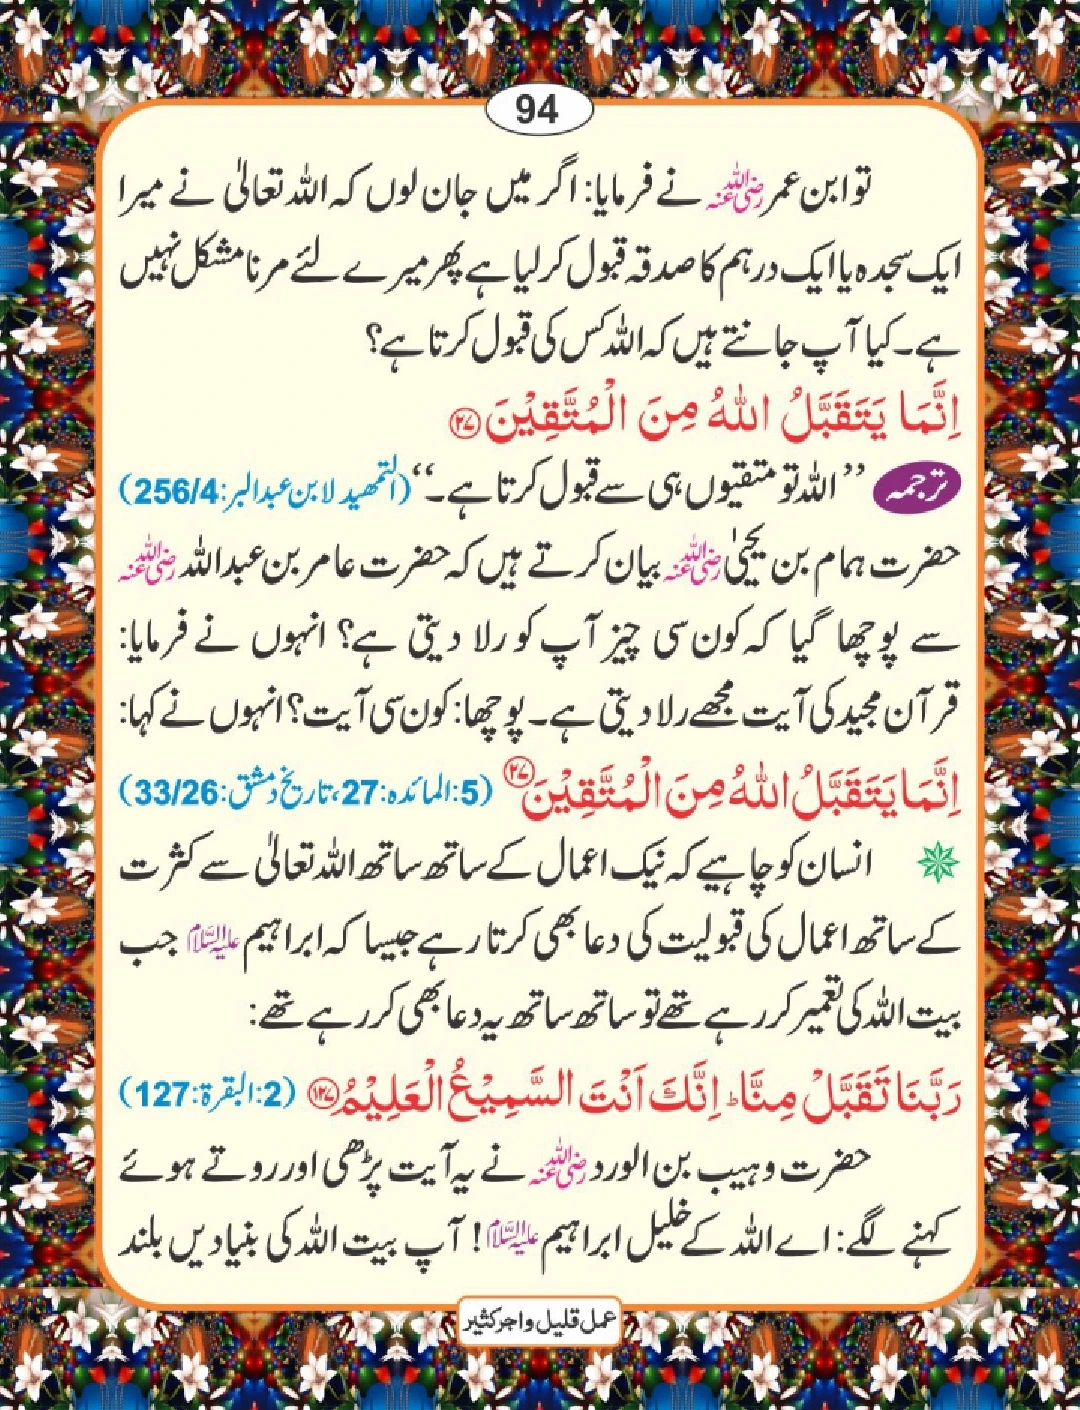 94
تو ابن عمر رضی اللہ عنہ نے فرمایا: اگر میں جان لوں کہ اللہ تعالیٰ نے میرا
ایک سجدہ یا ایک درہم کا صدقہ قبول کر لیا ہے پھر میرے لئے مرنا مشکل نہیں
ہے۔ کیا آپ جانتے ہیں کہ اللہ کس کی قبول کرتا ہے؟
اِنَّمَا يَتَقَبَّلُ اللهُ مِنَ الْمُتَّقِيْنَ ۲۷
ترجمہ ”اللہ تو متقیوں ہی سے قبول کرتا ہے۔“ (التمھید لابن عبدالبر: 256/4)
حضرت ہمام بن یحییٰ رضی اللہ عنہ بیان کرتے ہیں کہ حضرت عامر بن عبداللہ رضی اللہ عنہ
سے پوچھا گیا کہ کون سی چیز آپ کو رلا دیتی ہے؟ انہوں نے فرمایا:
قرآن مجید کی آیت مجھے رلا دیتی ہے۔ پوچھا: کون سی آیت؟ انہوں نے کہا:
اِنَّمَا يَتَقَبَّلُ اللهُ مِنَ الْمُتَّقِيْنَ ۲۷ (5: المائدہ: 27، تاریخ دمشق: 33/26)
انسان کو چاہیے کہ نیک اعمال کے ساتھ ساتھ اللہ تعالیٰ سے کثرت
کے ساتھ اعمال کی قبولیت کی دعا بھی کرتا رہے جیسا کہ ابراہیم علیہ السلام جب
بیت اللہ کی تعمیر کر رہے تھے تو ساتھ ساتھ یہ دعا بھی کر رہے تھے:
رَبَّنَا تَقَبَّلْ مِنَّا ؕ اِنَّكَ اَنْتَ السَّمِيْعُ الْعَلِيْمُ ۱۲۷ (2: البقرۃ: 127)
حضرت وہیب بن الورد رضی اللہ عنہ نے یہ آیت پڑھی اور روتے ہوئے
کہنے لگے: اے اللہ کے خلیل ابراہیم علیہ السلام! آپ بیت اللہ کی بنیادیں بلند
عمل قلیل و اجر کثیر